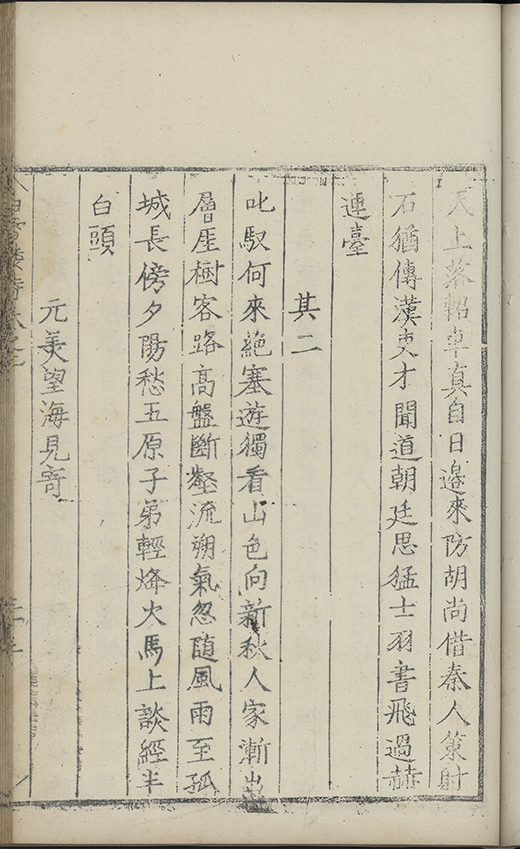 天上落軺車真自日邊來防胡尚借秦人策射
石猶傳漢吏才聞道朝廷思猛士羽書飛過赫
連臺
其二
叱馭何來絶塞遊獨看山色向新秋人家漸出
層崖樹客路高盤斷壑流朔氣忽随風雨至孤
城長傍夕陽愁五原子弟輕烽火馬上談經半
白頭
元美望海見寄
雪樓詩卷之